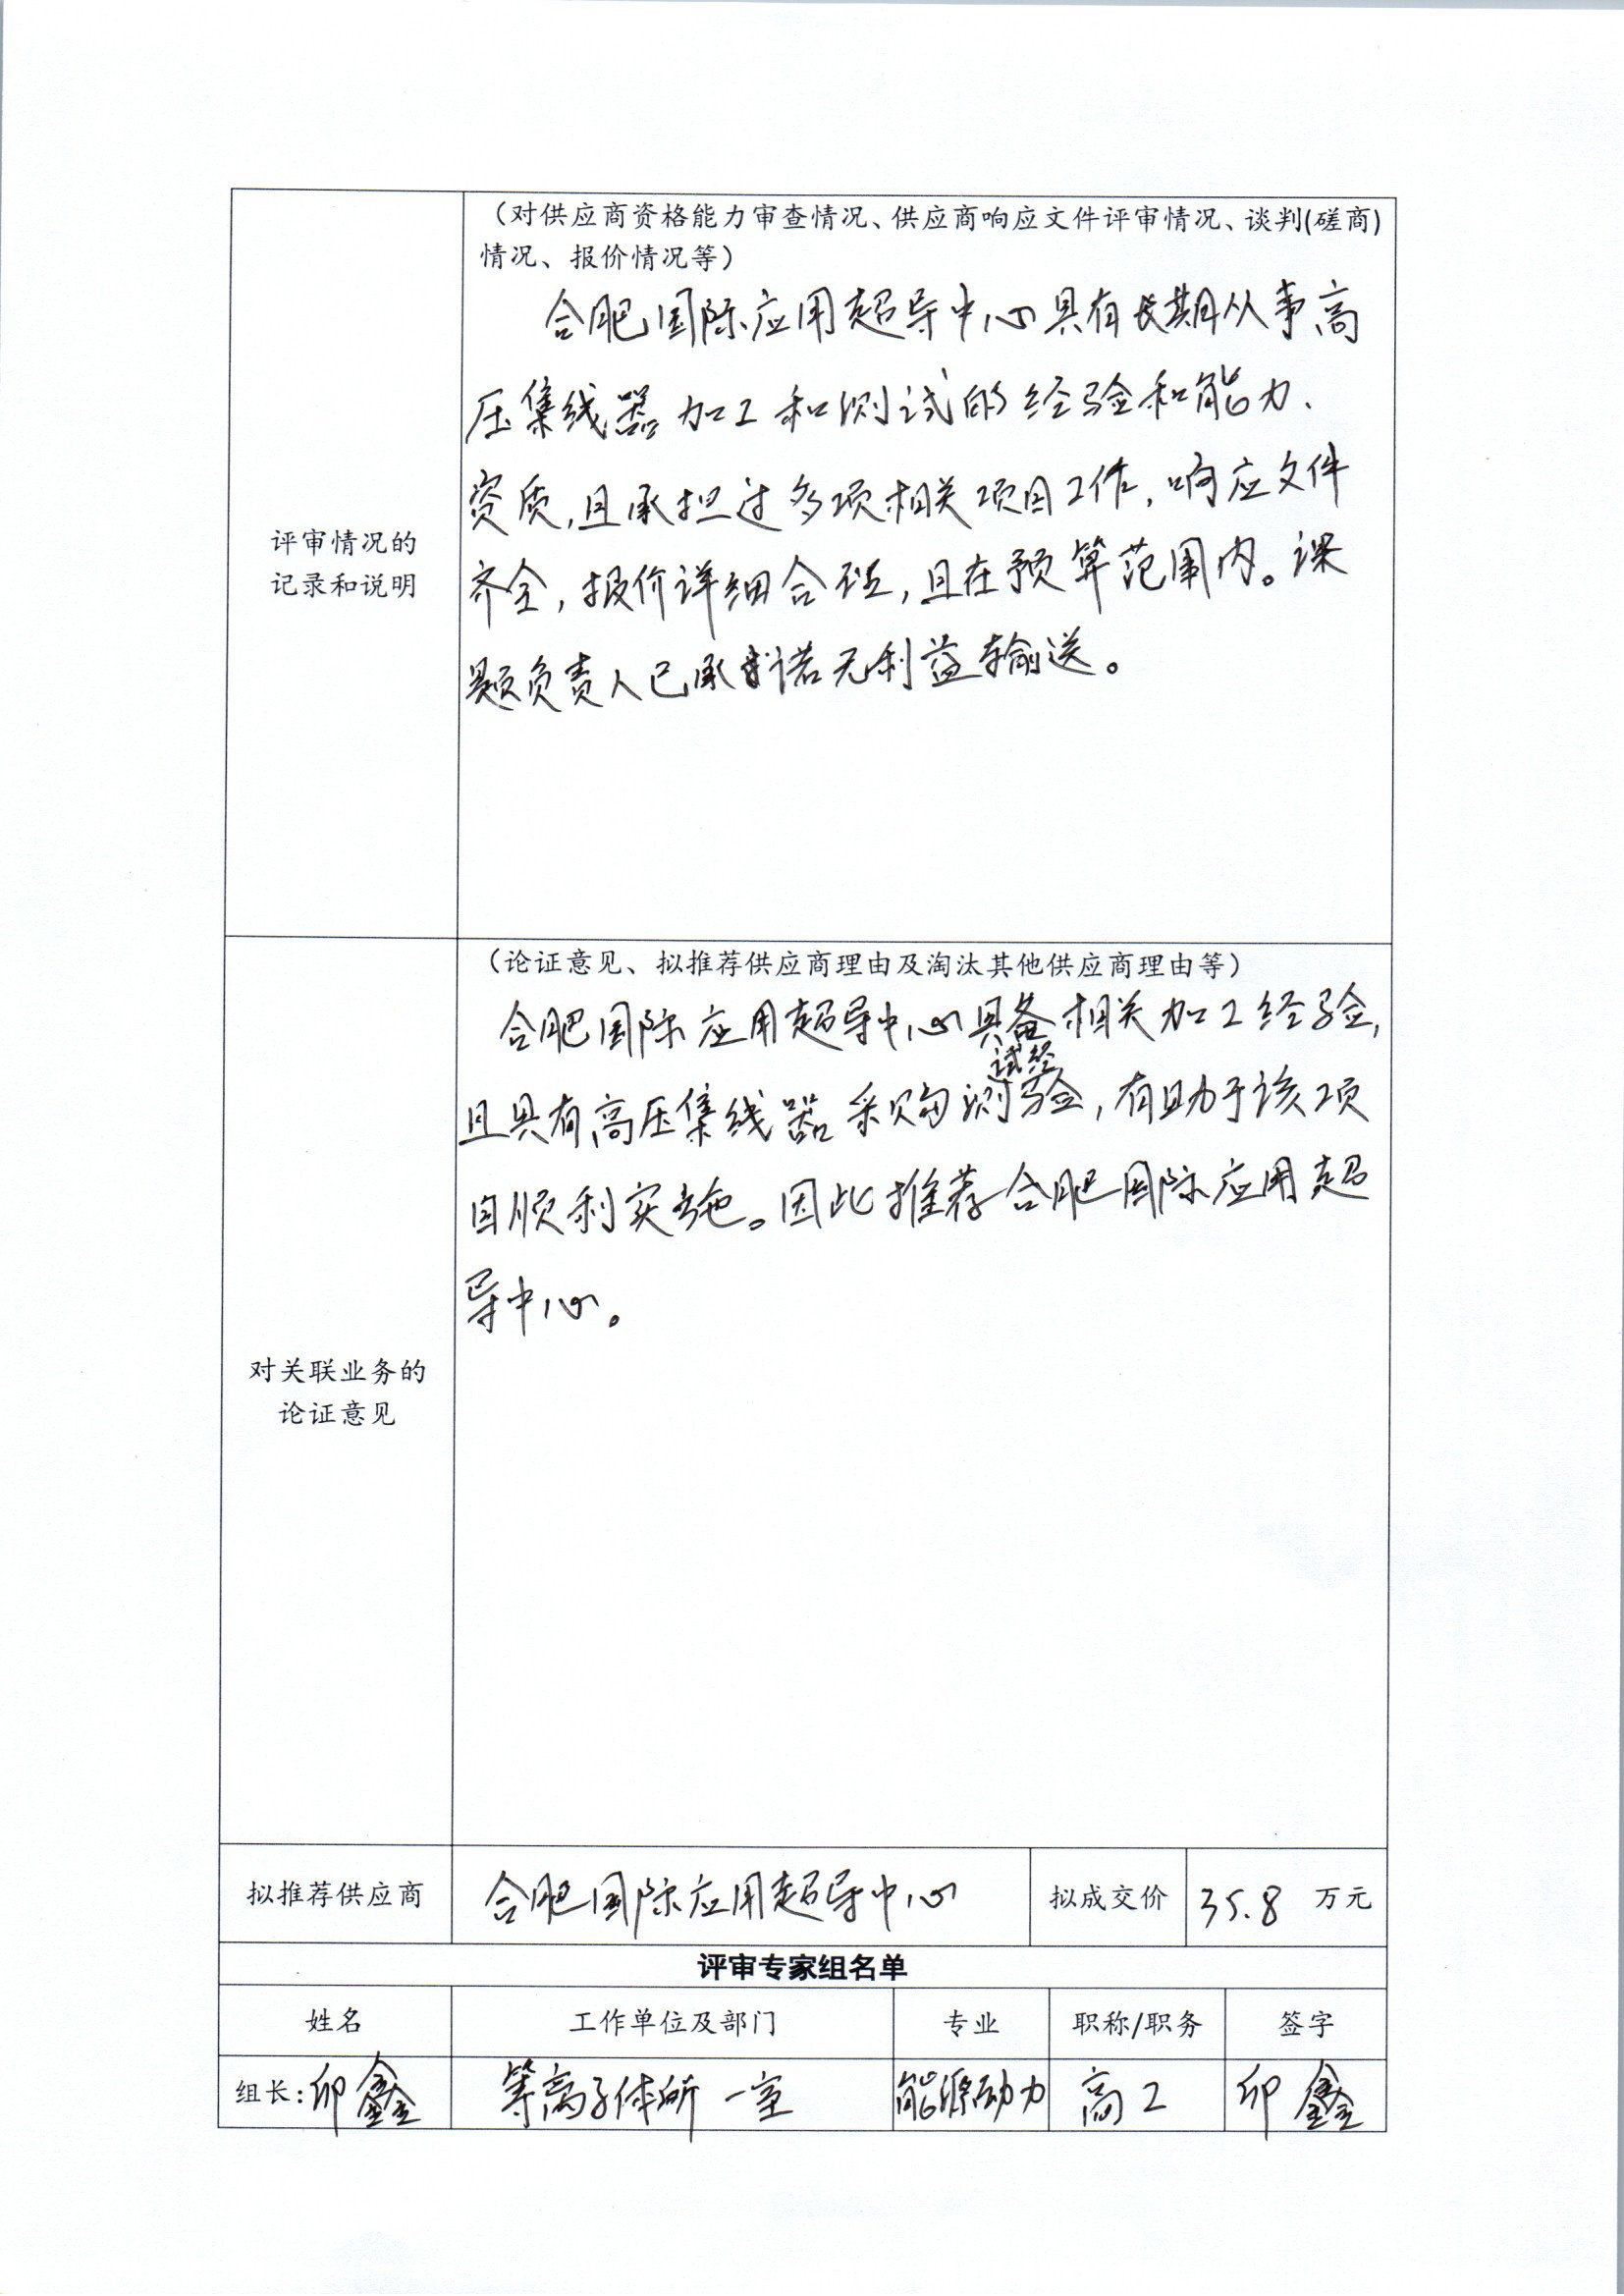 （对供应商资格能力审查情况、供应商响应文件评审情况、谈判(磋商)
情况、报价情况等）
合肥国际应用超导中心具有长期从事高
压集线器加工和测试的经验和能力、
资质,且承担过多项相关项目工作,响应文件
齐全,报价详细合理,且在预算范围内。课
题负责人已承诺无利益输送。
评审情况的
记录和说明
（论证意见、拟推荐供应商理由及淘汰其他供应商理由等）
合肥国际应用超导中心具备相关加工经验,
试经
且具有高压集线器采购测验,有助于该项
目顺利实施。因此推荐合肥国际应用超
导中心。
对关联业务的
论证意见
拟推荐供应商 合肥国际应用超导中心 拟成交价 35.8 万元
评审专家组名单
姓名 工作单位及部门 专业 职称/职务 签字
组长:印鑫 等离子体所一室 能源动力 高工 印鑫